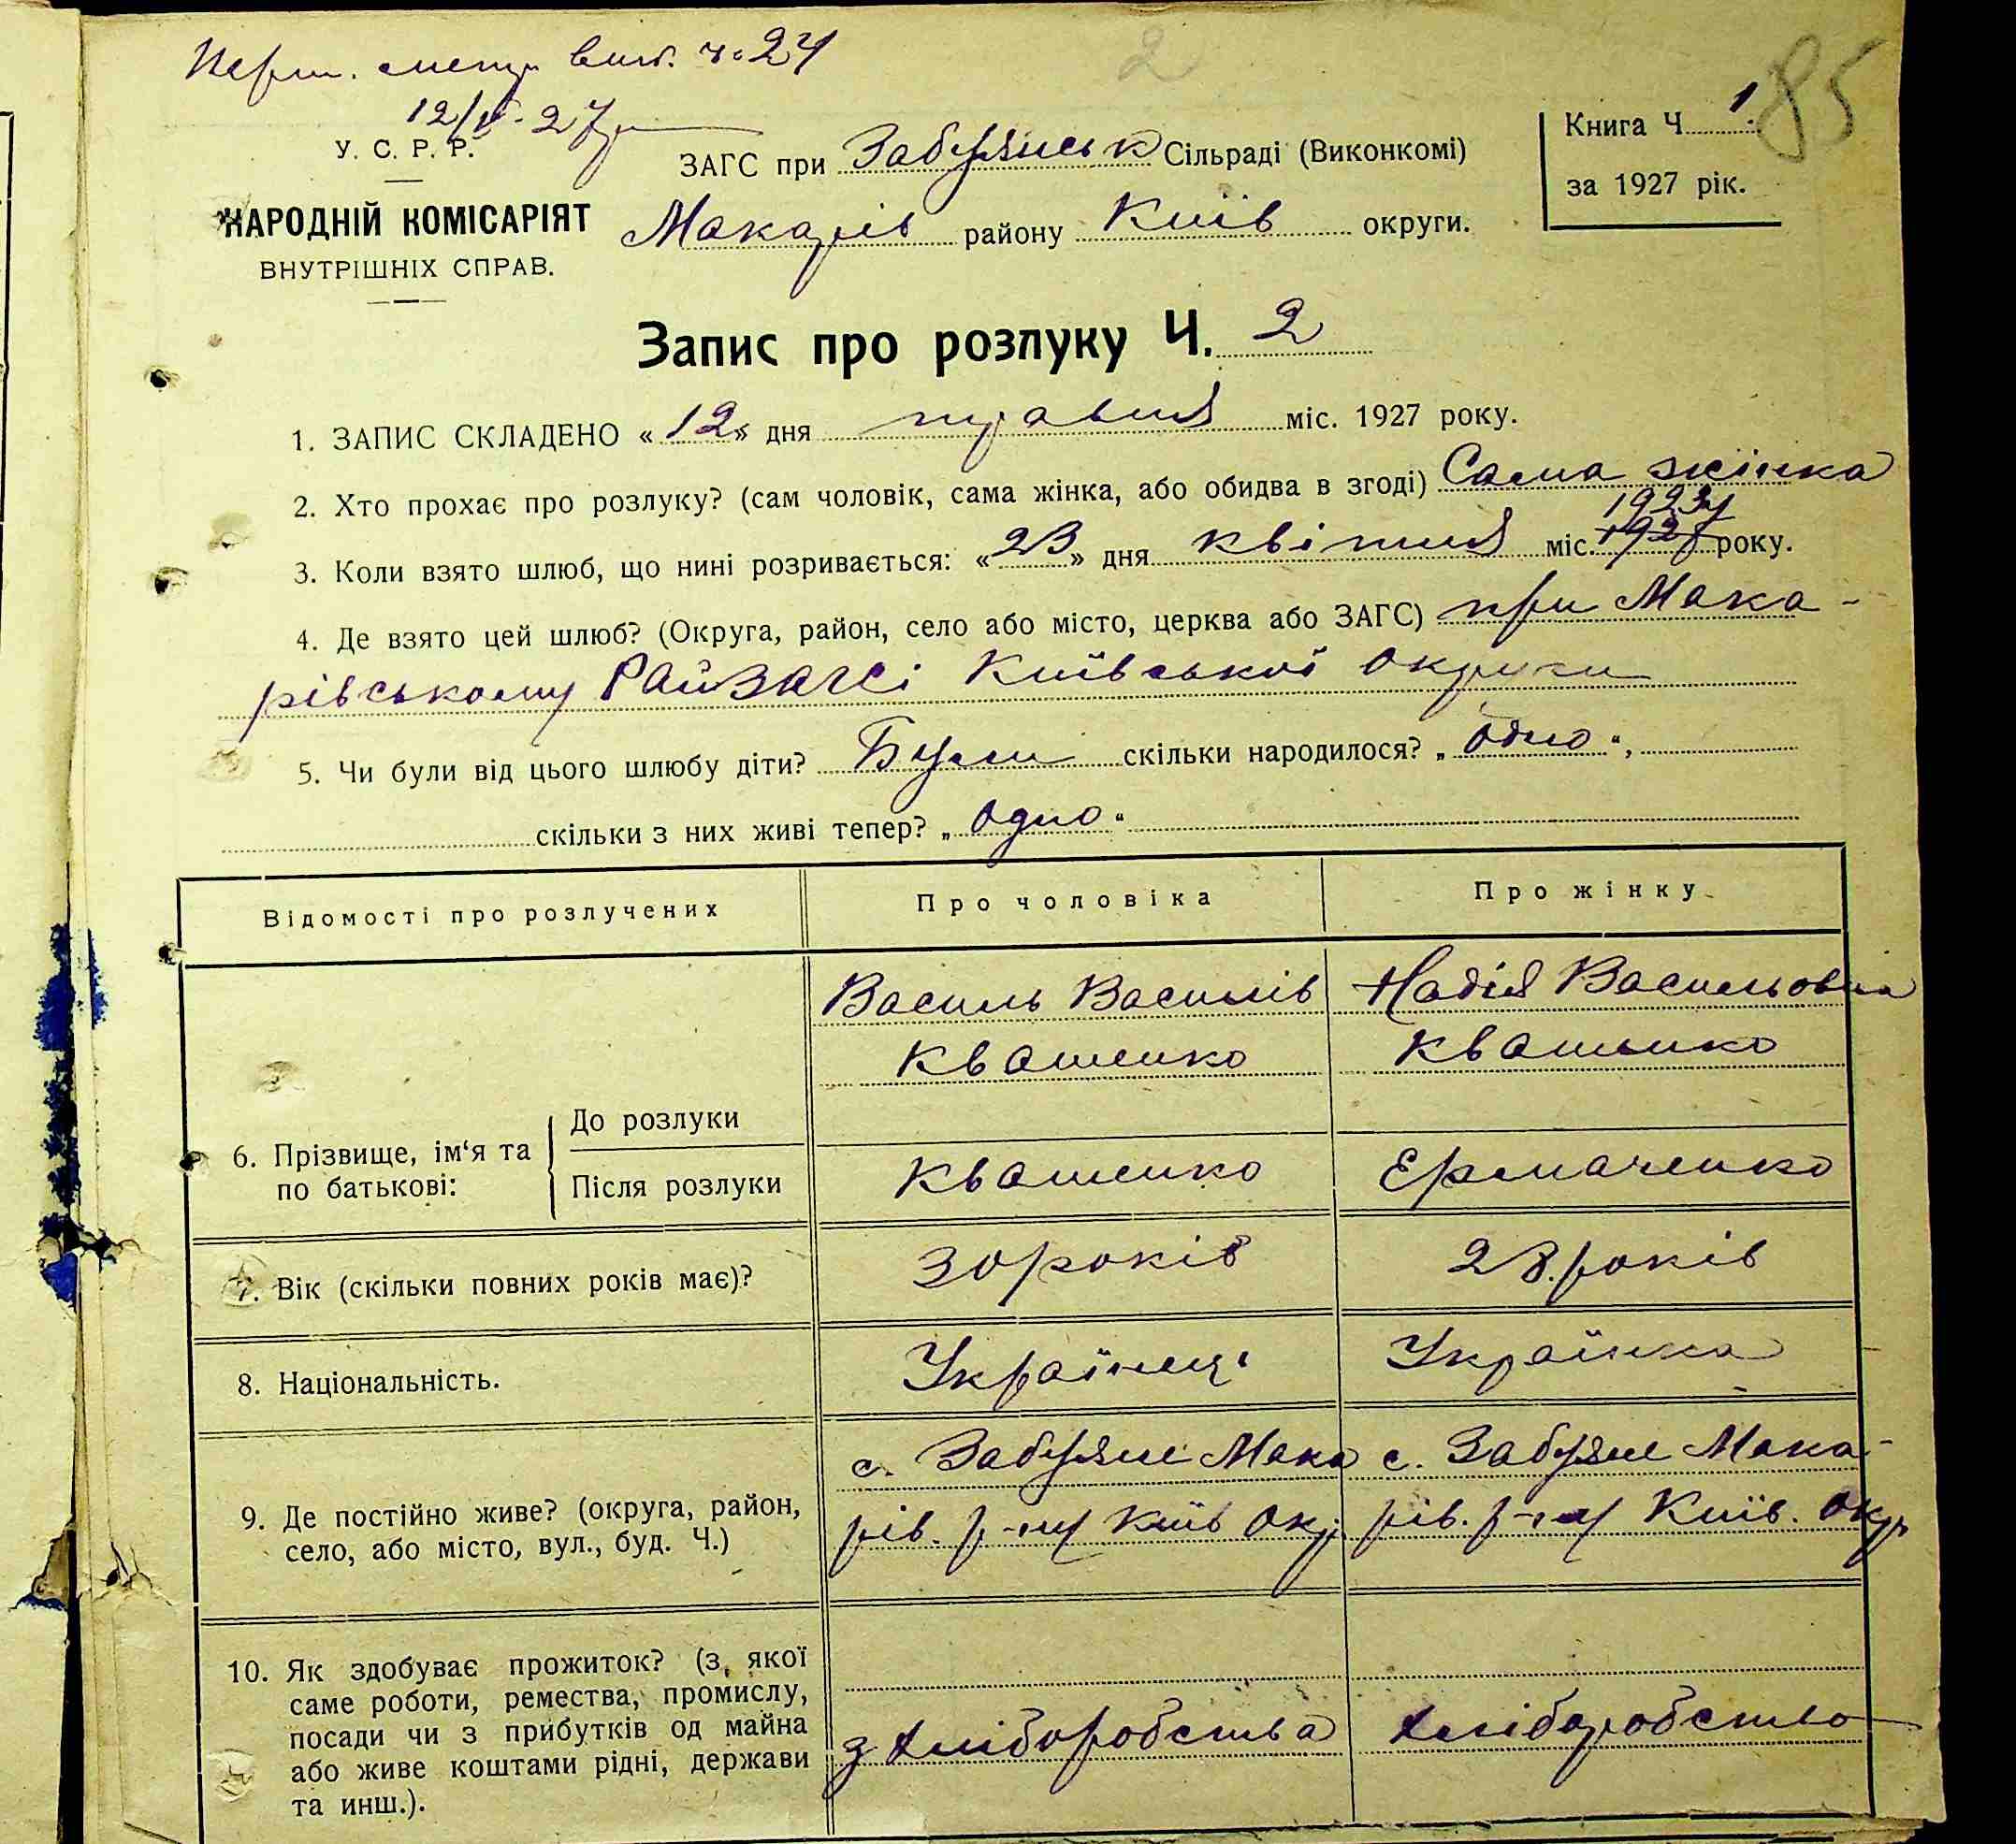 вип. ч. 24
2
12/V-27р
85
У. С. Р. Р.
НАРОДНІЙ КОМІСАРІЯТ
ВНУТРІШНІХ СПРАВ.
ЗАГС при Забуянськ Сільраді (Виконкомі)
Макарів району Київ округи.
Книга Ч 1.
за 1927 рік.
Запис про розлуку Ч. 2
1. ЗАПИС СКЛАДЕНО «12» дня травня міс. 1927 року.
2. Хто прохає про розлуку? (сам чоловік, сама жінка, або обидва в згоді) Сама жінка
1923р
3. Коли взято шлюб, що нині розривається: «23» дня квітня міс. 1927 року.
4. Де взято цей шлюб? (Округа, район, село або місто, церква або ЗАГС) при Мака-
рівському РайЗАГСі Київської округи
5. Чи були від цього шлюбу діти? Були скільки народилося? „ одно “,
скільки з них живі тепер? „ одно “
Відомості про розлучених Про чоловіка Про жінку
Василь Василів Надія Васильовна
Квашенко Квашенко
6. Прізвище, ім‘я та по батькові:
До розлуки
Після розлуки Квашенко Ермаченко
7. Вік (скільки повних років має)? 30 років 28. років
8. Національність. Українець Українка
с. Забуяне Мака с. Забуяне Мака-
9. Де постійно живе? (округа, район, рів. р-ну Київ Окр. рів. р-ну Київ. Окр
село, або місто, вул., буд. Ч.)
10. Як здобуває прожиток? (з якої
саме роботи, ремества, промислу,
посади чи з прибутків од майна з хліборобства хліборобство
або живе коштами рідні, держави
та инш.).